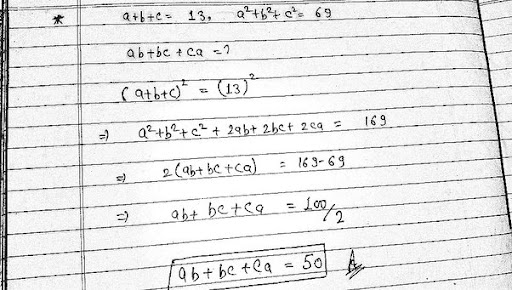 * a+b+c = 13, a²+b²+c² = 69
ab+bc+ca = ?
(a+b+c)² = (13)²
⇒ a²+b²+c² + 2ab+ 2bc+ 2ca = 169
⇒ 2(ab+bc+ca) = 169-69
⇒ ab+ bc+ca = 100/2
ab+bc+ca = 50 A